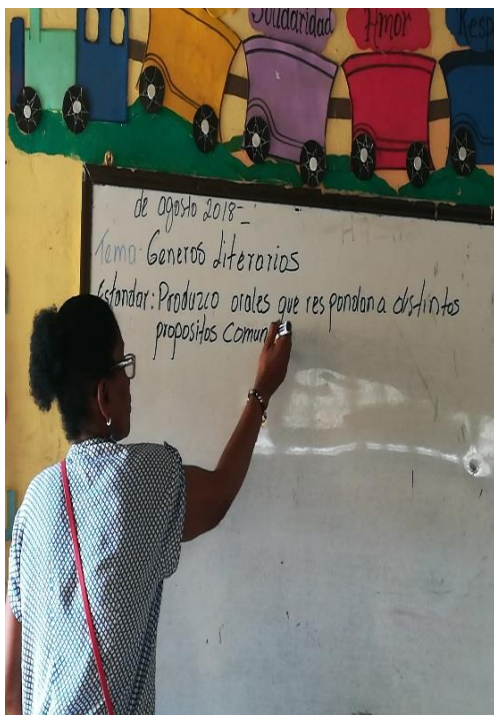 Solidaridad Amor Resp
de agosto 2018=
Tema: Generos Literarios
Estandar: Produzco orales que respondan a distintos
propositos comun